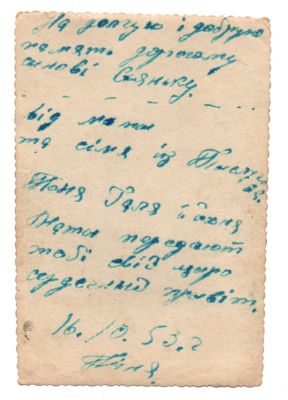 На довгую і добрую
память дорогому
синові Сяньку.
від мами
та сімя із
Тоня Галя і
Мати передают
тобі свій щиро
сердечний привіт.
16. 10. 53. г